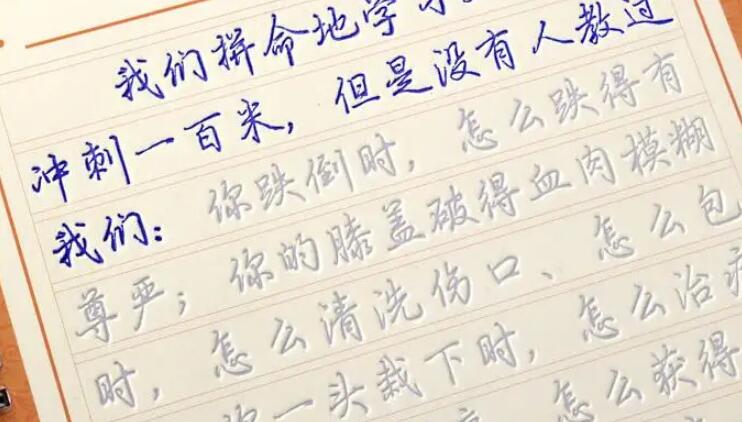 我们拼命地学习
冲刺一百米，但是没有人教过
我们：你跌倒时，怎么跌得有
尊严；你的膝盖破得血肉模糊
时，怎么清洗伤口、怎么包
一头栽下时，怎么治疗
怎么获得